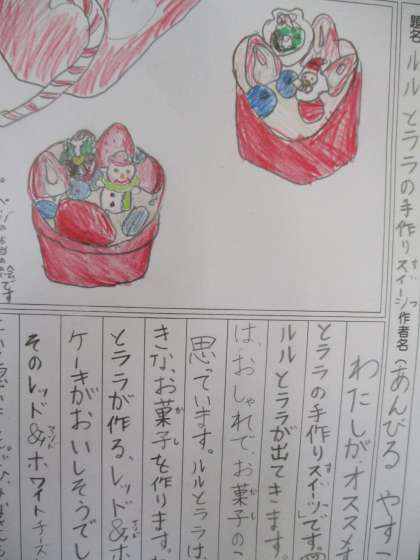 題名 ルルとララの手作りスイーツ 作者名 あんびるやすこ
わたしがオススメ
とララの手作りスイーツ」です。
ルルとララが出てきます
は、おしゃれで、お菓子のこ
思っています。ルルとララは
きな、お菓子を作ります。
とララが作る、レッド&ホ
ケーキがおいしそうでし
そのレッド&ホワイトチーズ
絵です